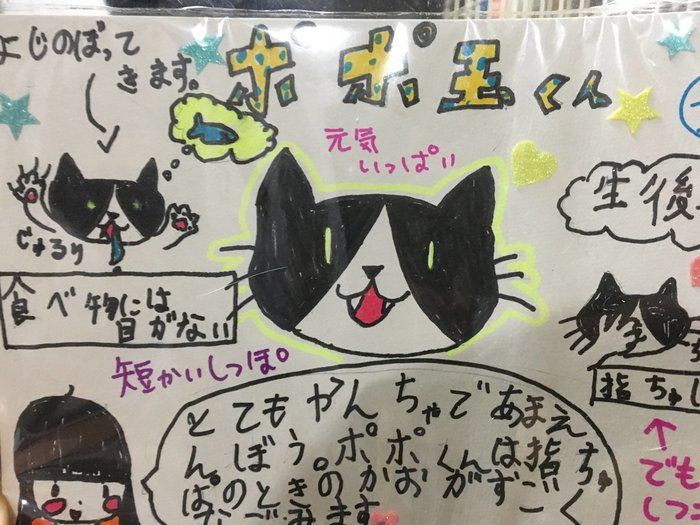 よじのぼって
きます。
ポポ玉くん
元気
いっぱい
生後
じゅるり
食べ物には
目がない
短かいしっぽ。
指ちゅ
でも
とてもやんちゃであまえ
んぼう。ポポくんは指ちゅ
ぱのときのかおがすごく